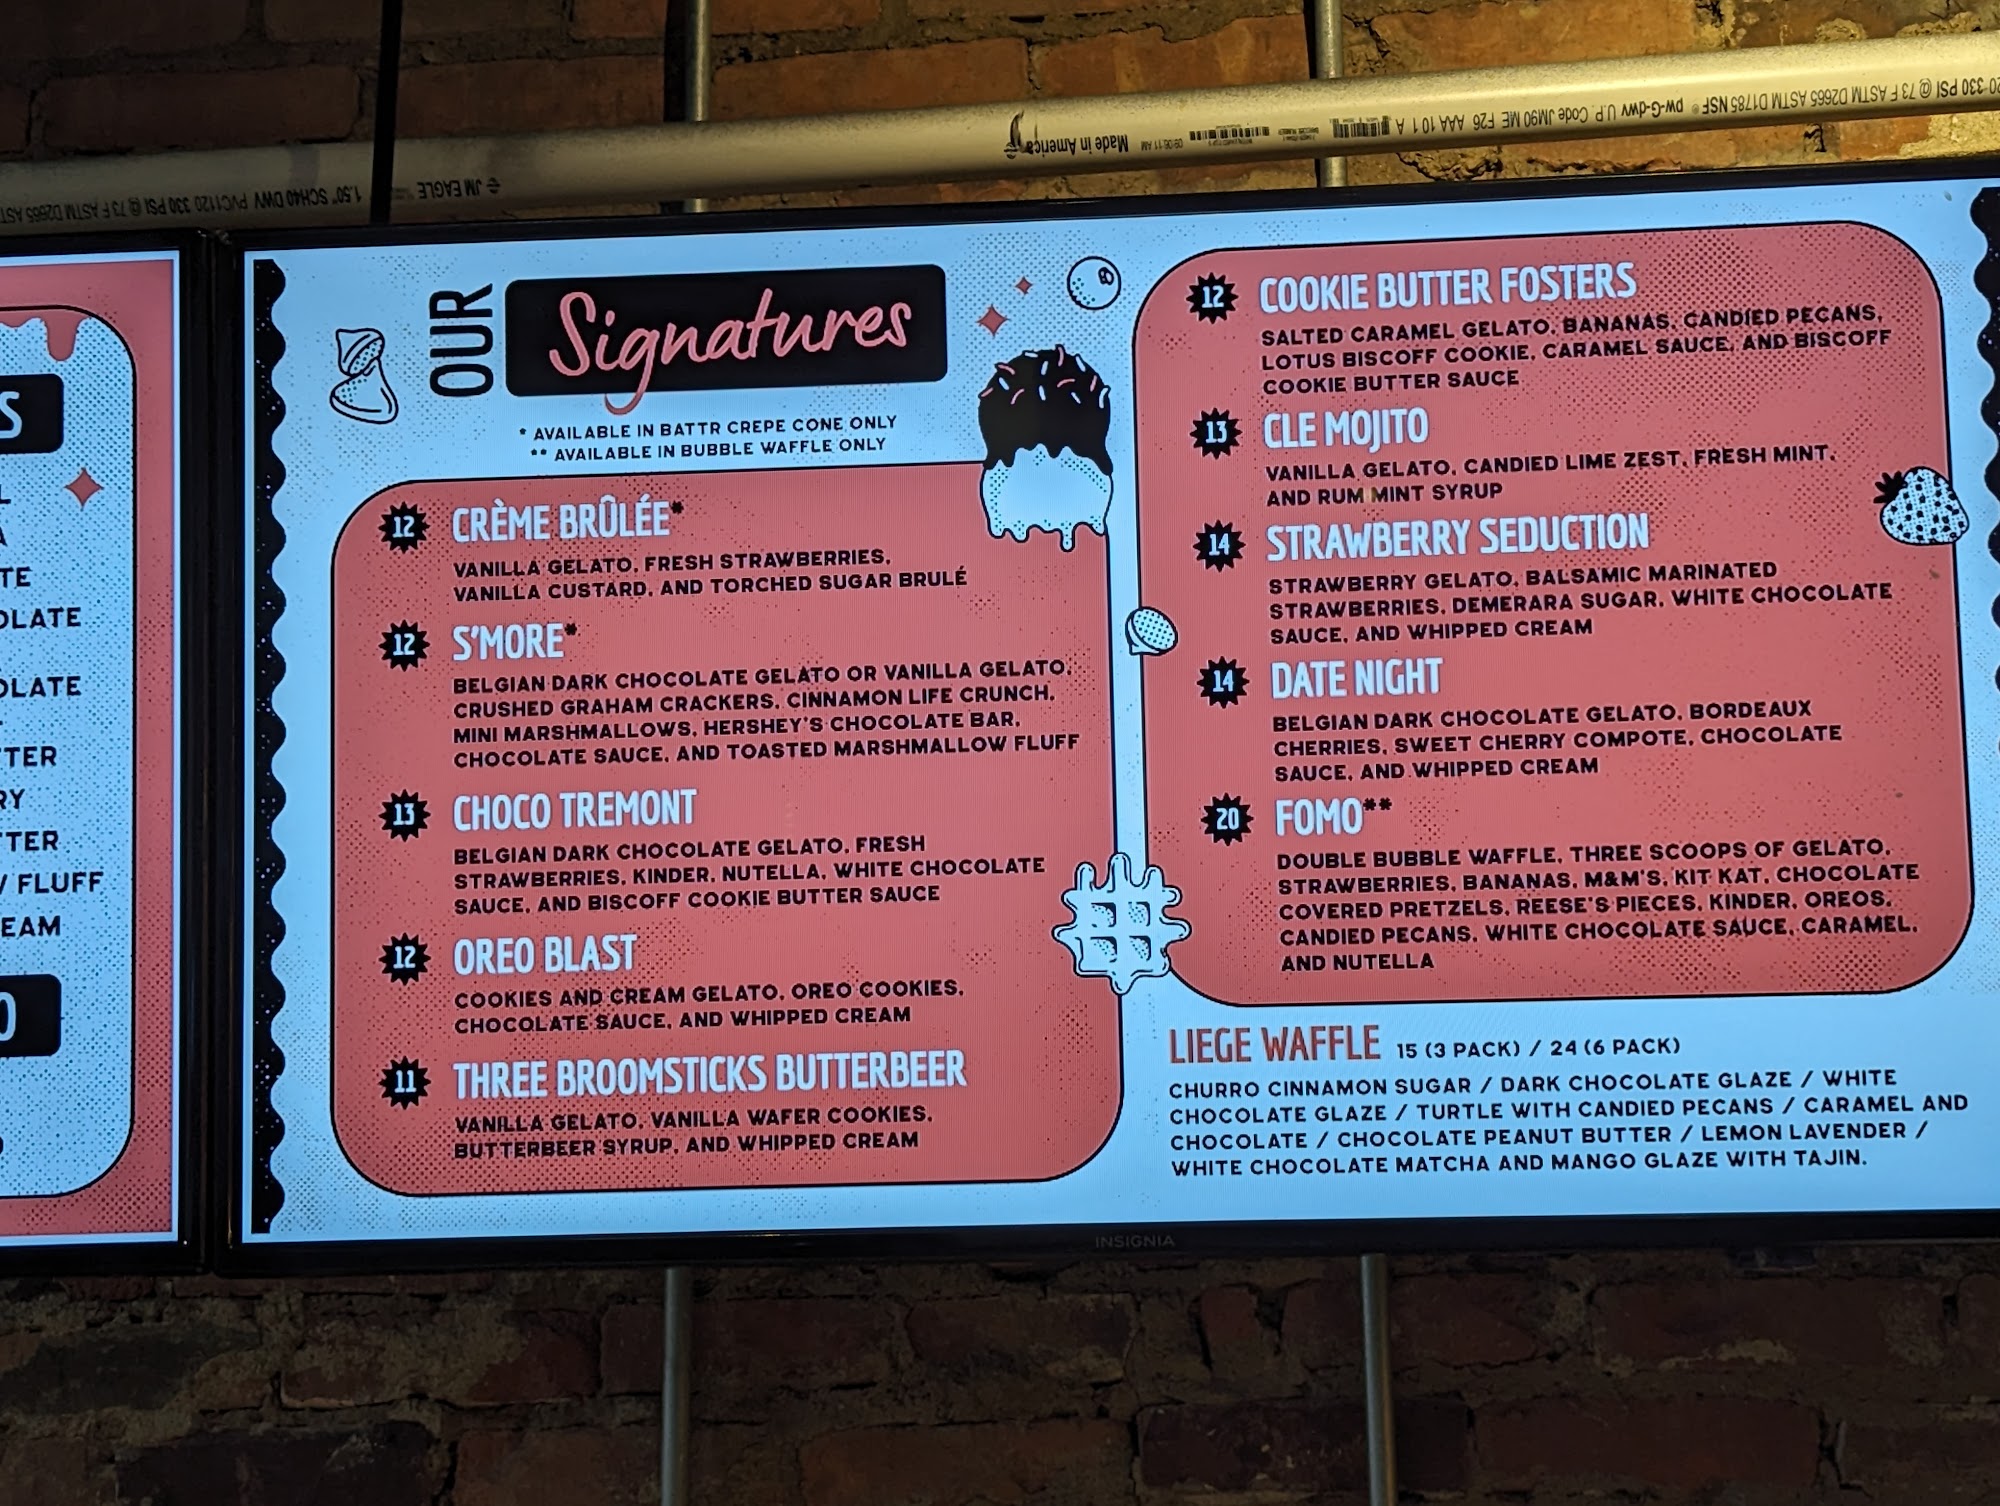 20 330 PSI @ 73 F ASTM D2665 ASTM D1785 NSF® pw-G-dwv U.P. Code JM90 ME F26 AAA 101 A
Made in America 09:06:11 AM
JM EAGLE
1.50" SCH40 DWV PVC1120 330 PSI @ 73 F ASTM D2665 AST
S
L
A
TE
OLATE
OLATE
TTER
RY
TTER
W FLUFF
EAM
O
OUR Signatures
* AVAILABLE IN BATTR CREPE CONE ONLY
** AVAILABLE IN BUBBLE WAFFLE ONLY
12 CRÈME BRÛLÉE*
VANILLA GELATO, FRESH STRAWBERRIES,
VANILLA CUSTARD, AND TORCHED SUGAR BRULÉ
12 S'MORE*
BELGIAN DARK CHOCOLATE GELATO OR VANILLA GELATO,
CRUSHED GRAHAM CRACKERS, CINNAMON LIFE CRUNCH,
MINI MARSHMALLOWS, HERSHEY'S CHOCOLATE BAR,
CHOCOLATE SAUCE, AND TOASTED MARSHMALLOW FLUFF
13 CHOCO TREMONT
BELGIAN DARK CHOCOLATE GELATO, FRESH
STRAWBERRIES, KINDER, NUTELLA, WHITE CHOCOLATE
SAUCE, AND BISCOFF COOKIE BUTTER SAUCE
12 OREO BLAST
COOKIES AND CREAM GELATO, OREO COOKIES,
CHOCOLATE SAUCE, AND WHIPPED CREAM
11 THREE BROOMSTICKS BUTTERBEER
VANILLA GELATO, VANILLA WAFER COOKIES,
BUTTERBEER SYRUP, AND WHIPPED CREAM
12 COOKIE BUTTER FOSTERS
SALTED CARAMEL GELATO, BANANAS, CANDIED PECANS,
LOTUS BISCOFF COOKIE, CARAMEL SAUCE, AND BISCOFF
COOKIE BUTTER SAUCE
13 CLE MOJITO
VANILLA GELATO, CANDIED LIME ZEST, FRESH MINT,
AND RUM MINT SYRUP
14 STRAWBERRY SEDUCTION
STRAWBERRY GELATO, BALSAMIC MARINATED
STRAWBERRIES, DEMERARA SUGAR, WHITE CHOCOLATE
SAUCE, AND WHIPPED CREAM
14 DATE NIGHT
BELGIAN DARK CHOCOLATE GELATO, BORDEAUX
CHERRIES, SWEET CHERRY COMPOTE, CHOCOLATE
SAUCE, AND WHIPPED CREAM
20 FOMO**
DOUBLE BUBBLE WAFFLE, THREE SCOOPS OF GELATO,
STRAWBERRIES, BANANAS, M&M'S, KIT KAT, CHOCOLATE
COVERED PRETZELS, REESE'S PIECES, KINDER, OREOS,
CANDIED PECANS, WHITE CHOCOLATE SAUCE, CARAMEL,
AND NUTELLA
LIEGE WAFFLE 15 (3 PACK) / 24 (6 PACK)
CHURRO CINNAMON SUGAR / DARK CHOCOLATE GLAZE / WHITE
CHOCOLATE GLAZE / TURTLE WITH CANDIED PECANS / CARAMEL AND
CHOCOLATE / CHOCOLATE PEANUT BUTTER / LEMON LAVENDER /
WHITE CHOCOLATE MATCHA AND MANGO GLAZE WITH TAJIN.
INSIGNIA